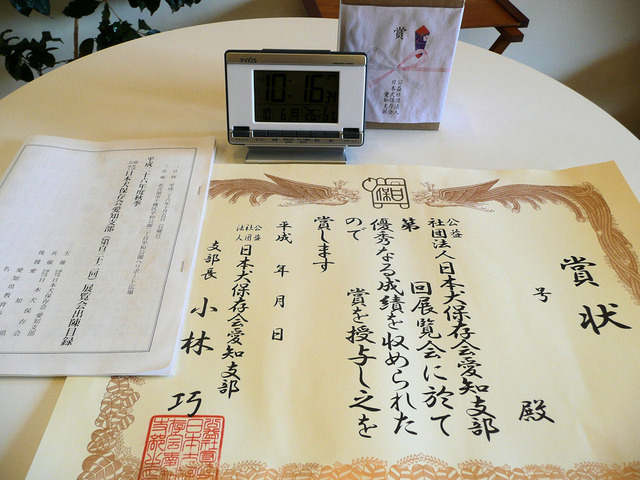 賞状
号
殿
公益
社団法人日本犬保存会愛知支部
第　回展覧会に於て
優秀なる成績を收められた
ので　賞を授与し之を
賞します
平成　年　月　日
公益
社団
法人
日本犬保存会愛知支部
支部長　小林　巧
平成二十六年度秋季
日本犬保存会愛知支部（第百二十二回）展覧会出陳目録
主催
共催
後援
賞
公益社団法人
日本犬保存会
愛知支部
PYXIS
10:16